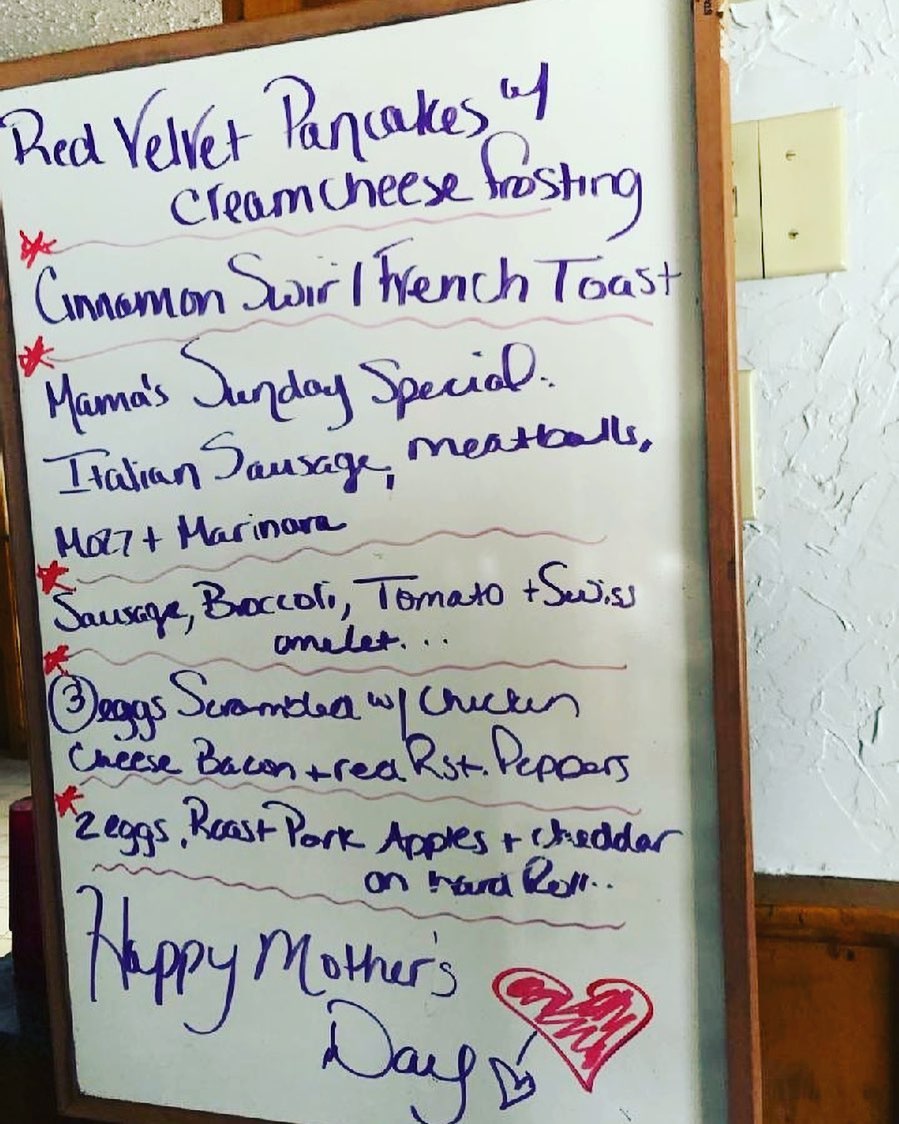 Red Velvet Pancakes w/
creamcheese frosting
Cinnamon Swirl French Toast
Mama's Sunday Special.
Italian Sausage, meatballs,
Mozz + Marinara
Sausage, Broccoli, Tomato + Swiss
omelet...
3 eggs Scrambled w/ Chicken
Cheese Bacon + red Rst. Peppers
2 eggs, Roast Pork Apples + cheddar
on hard Roll..
Happy Mother's
Day